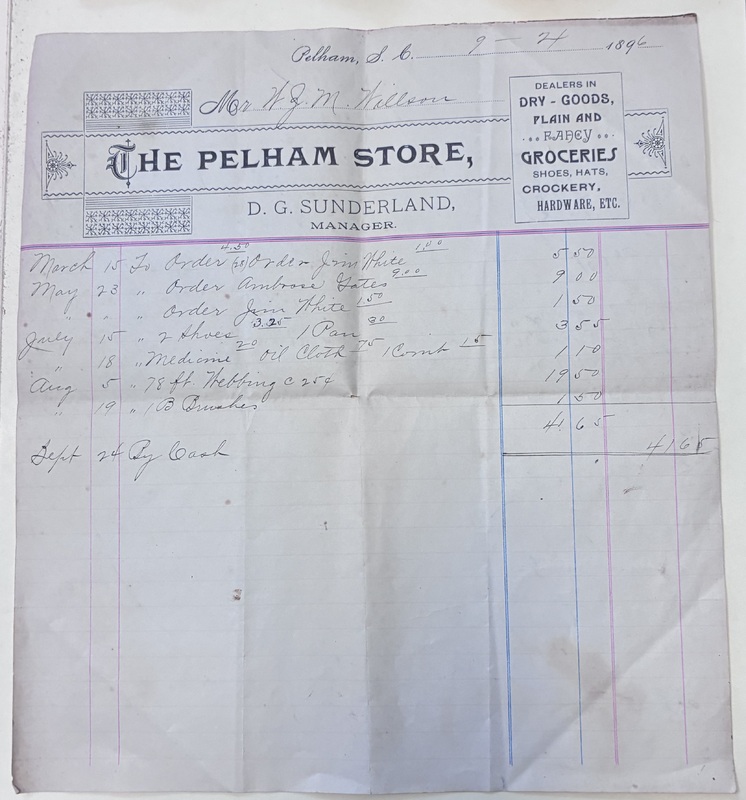 Pelham, S. C. 9 - 24 1896
Mr W. J. M. Willson
DEALERS IN
DRY - GOODS,
PLAIN AND
FANCY
GROCERIES
SHOES, HATS,
CROCKERY,
HARDWARE, ETC.
THE PELHAM STORE,
D. G. SUNDERLAND,
MANAGER.
March 15 To Order 4.50 Order Jim White 1.00 5 50
May 23 " Order Ambrose Yates 9.00 9 00
" " " Order Jim White 1.50 1 50
July 15 " 2 Shoes 3.25 1 Pan 30 3 55
" 18 " Medicine 20 Oil Cloth 75 1 Comb 15 1 10
Aug 5 " 78 ft. Webbing c 25¢ 19 50
" 19 " 1 B Brushes 1 50
41 65
Sept 24 By Cash 41 65